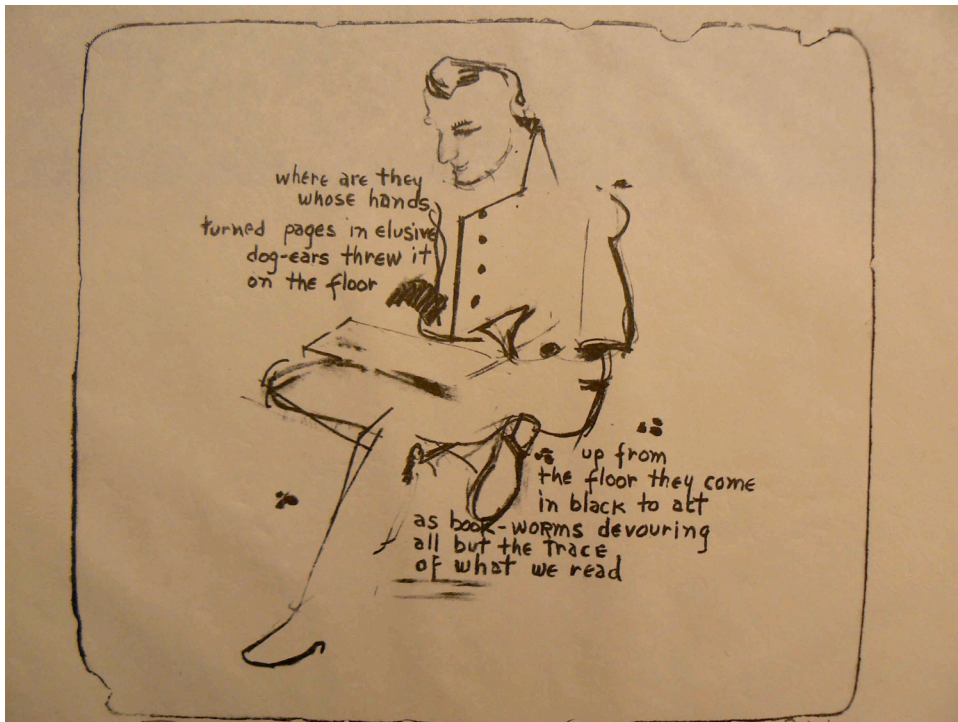 where are they
whose hands
turned pages in elusive
dog-ears threw it
on the floor
up from
the floor they come
in black to act
as book-worms devouring
all but the trace
of what we read